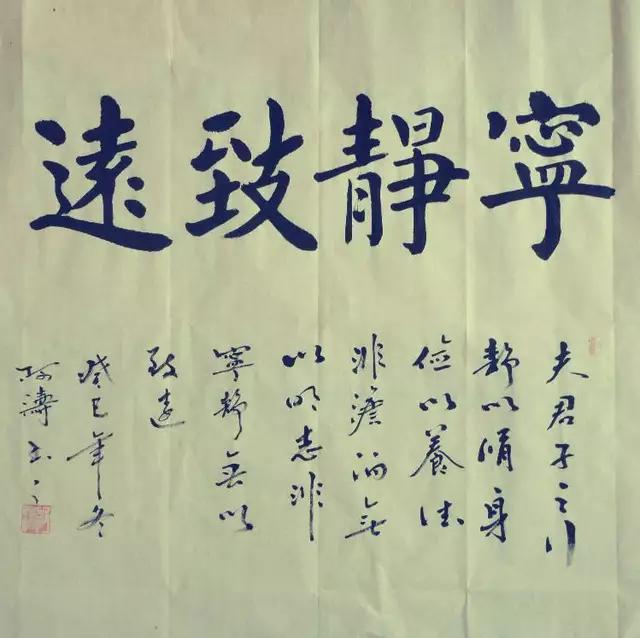 寧靜致遠
夫君子之行
靜以脩身
儉以養德
非澹泊無
以明志非
寧靜無以
致遠
癸巳年冬
濤书之